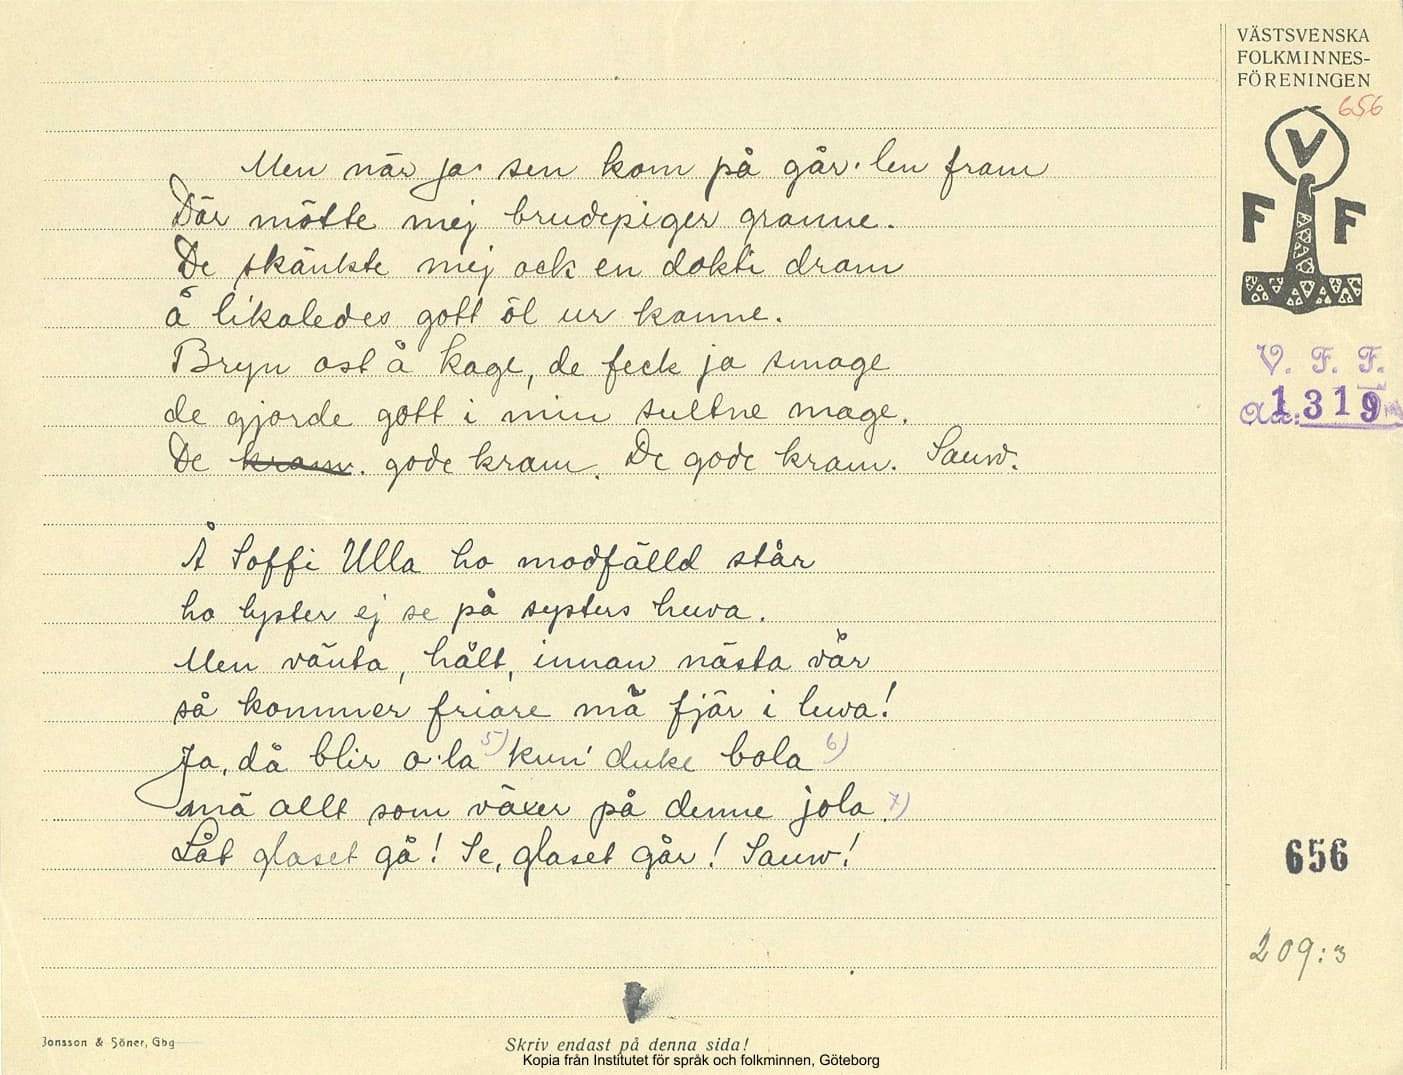 VÄSTSVENSKA
FOLKMINNES-
FÖRENINGEN
656
V
F F
V. F. F.
Acc: 1319
Men när ja sen kom på går'len fram
Där mötte mej brudepiger granne.
De skänkte mej ock en dokti dram
å likaledes gott öl ur kanne.
Bryn ost å kage, de feck ja smage
de gjorde gott i min sultne mage.
De kram. gode kram. De gode kram. Sauw.
Å Soffi Ulla ho modfälld står
ho lyster ej se på systers huva.
Men vänta, hålt, innan nästa vår
så kommer friare mä fjär i luva!
Ja, då blir o'la 5) kun' duke bola 6)
mä allt som växer på denne jola. 7)
Låt glaset gå! Se, glaset går! Sauw!
656
209:3
Jonsson & Söner, Gbg
Skriv endast på denna sida!
Kopia från Institutet för språk och folkminnen, Göteborg